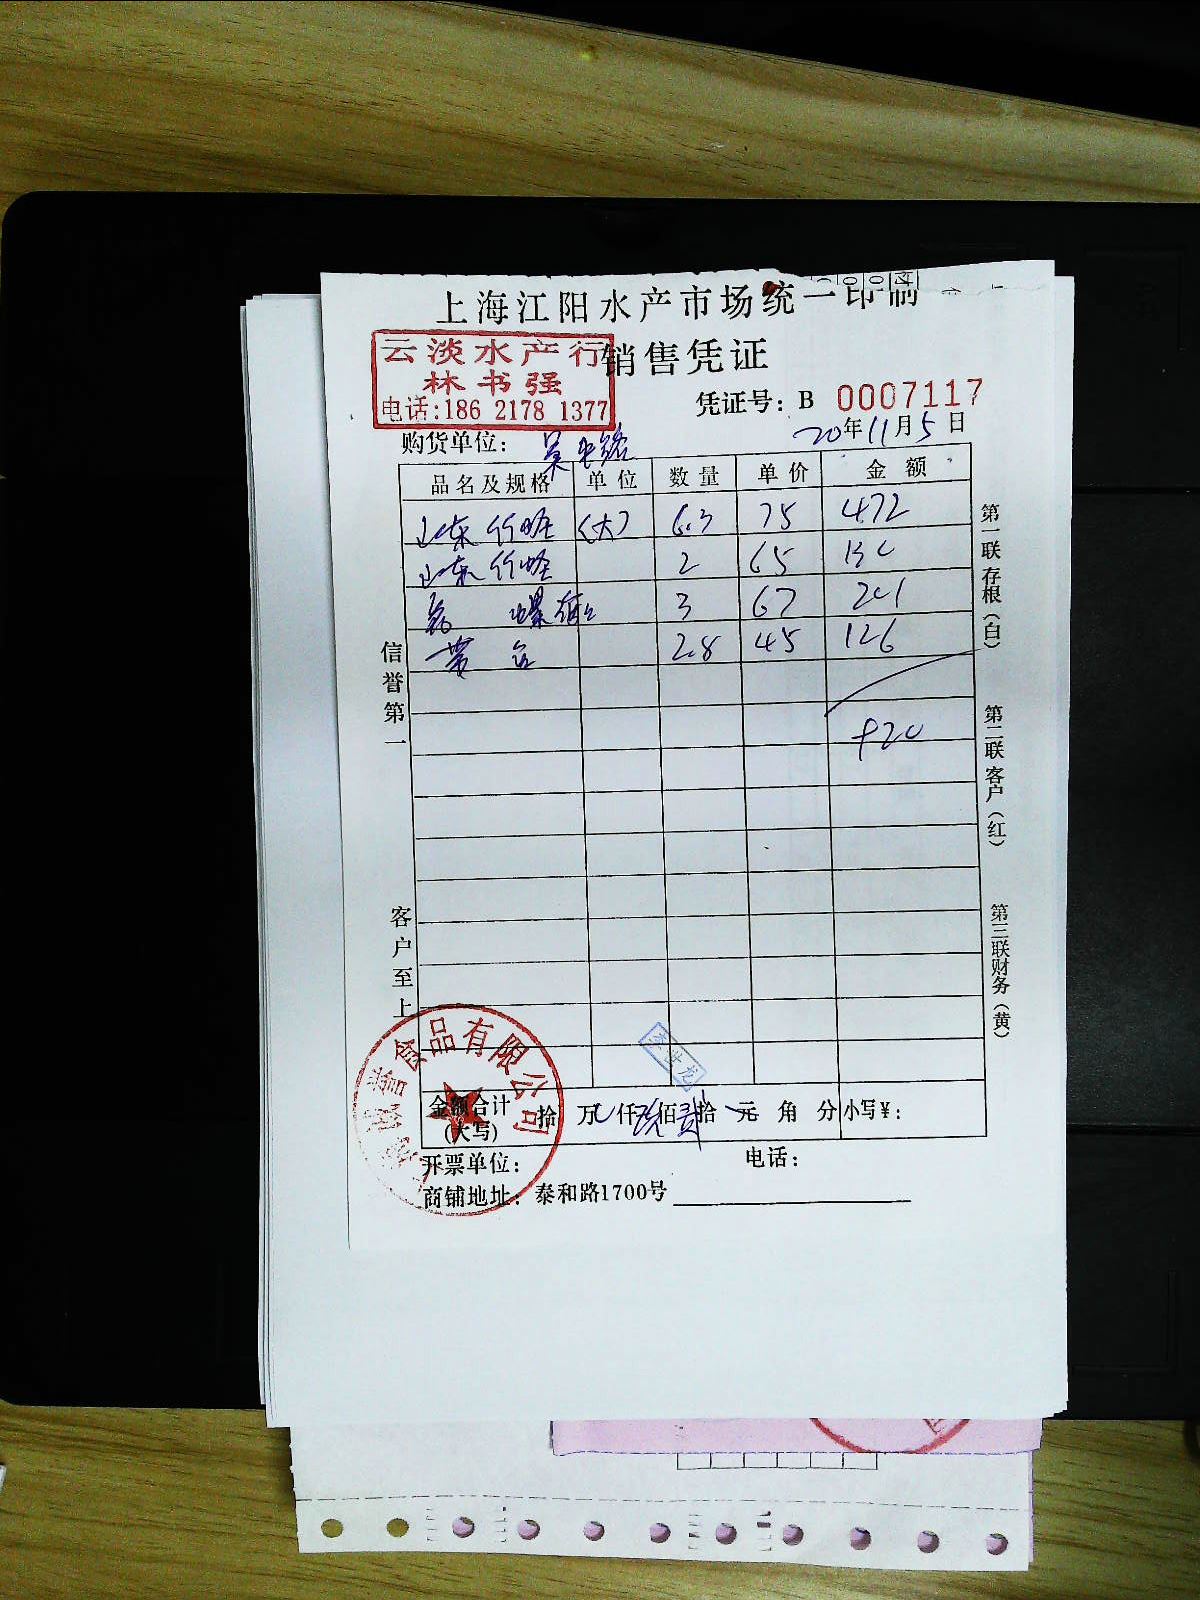 上海江阳水产市场统一印制
销售凭证
云淡水产行
林书强
电话:186 2178 1377
凭证号: B 0007117
20年11月5日
购货单位:
品名及规格 单位 数量 单价 金额
山东竹蛏 (大) 6.3 75 472
山东竹蛏 2 65 130
螺 3 67 201
2.8 45 126
920
信誉第一
客户至上
第一联存根(白)
第二联客户(红)
第三联财务(黄)
食品有限公司
李世龙
金额合计(大写) 拾 万 仟 玖 佰 贰 拾 元 角 分 小写¥:
开票单位: 电话:
商铺地址: 泰和路1700号